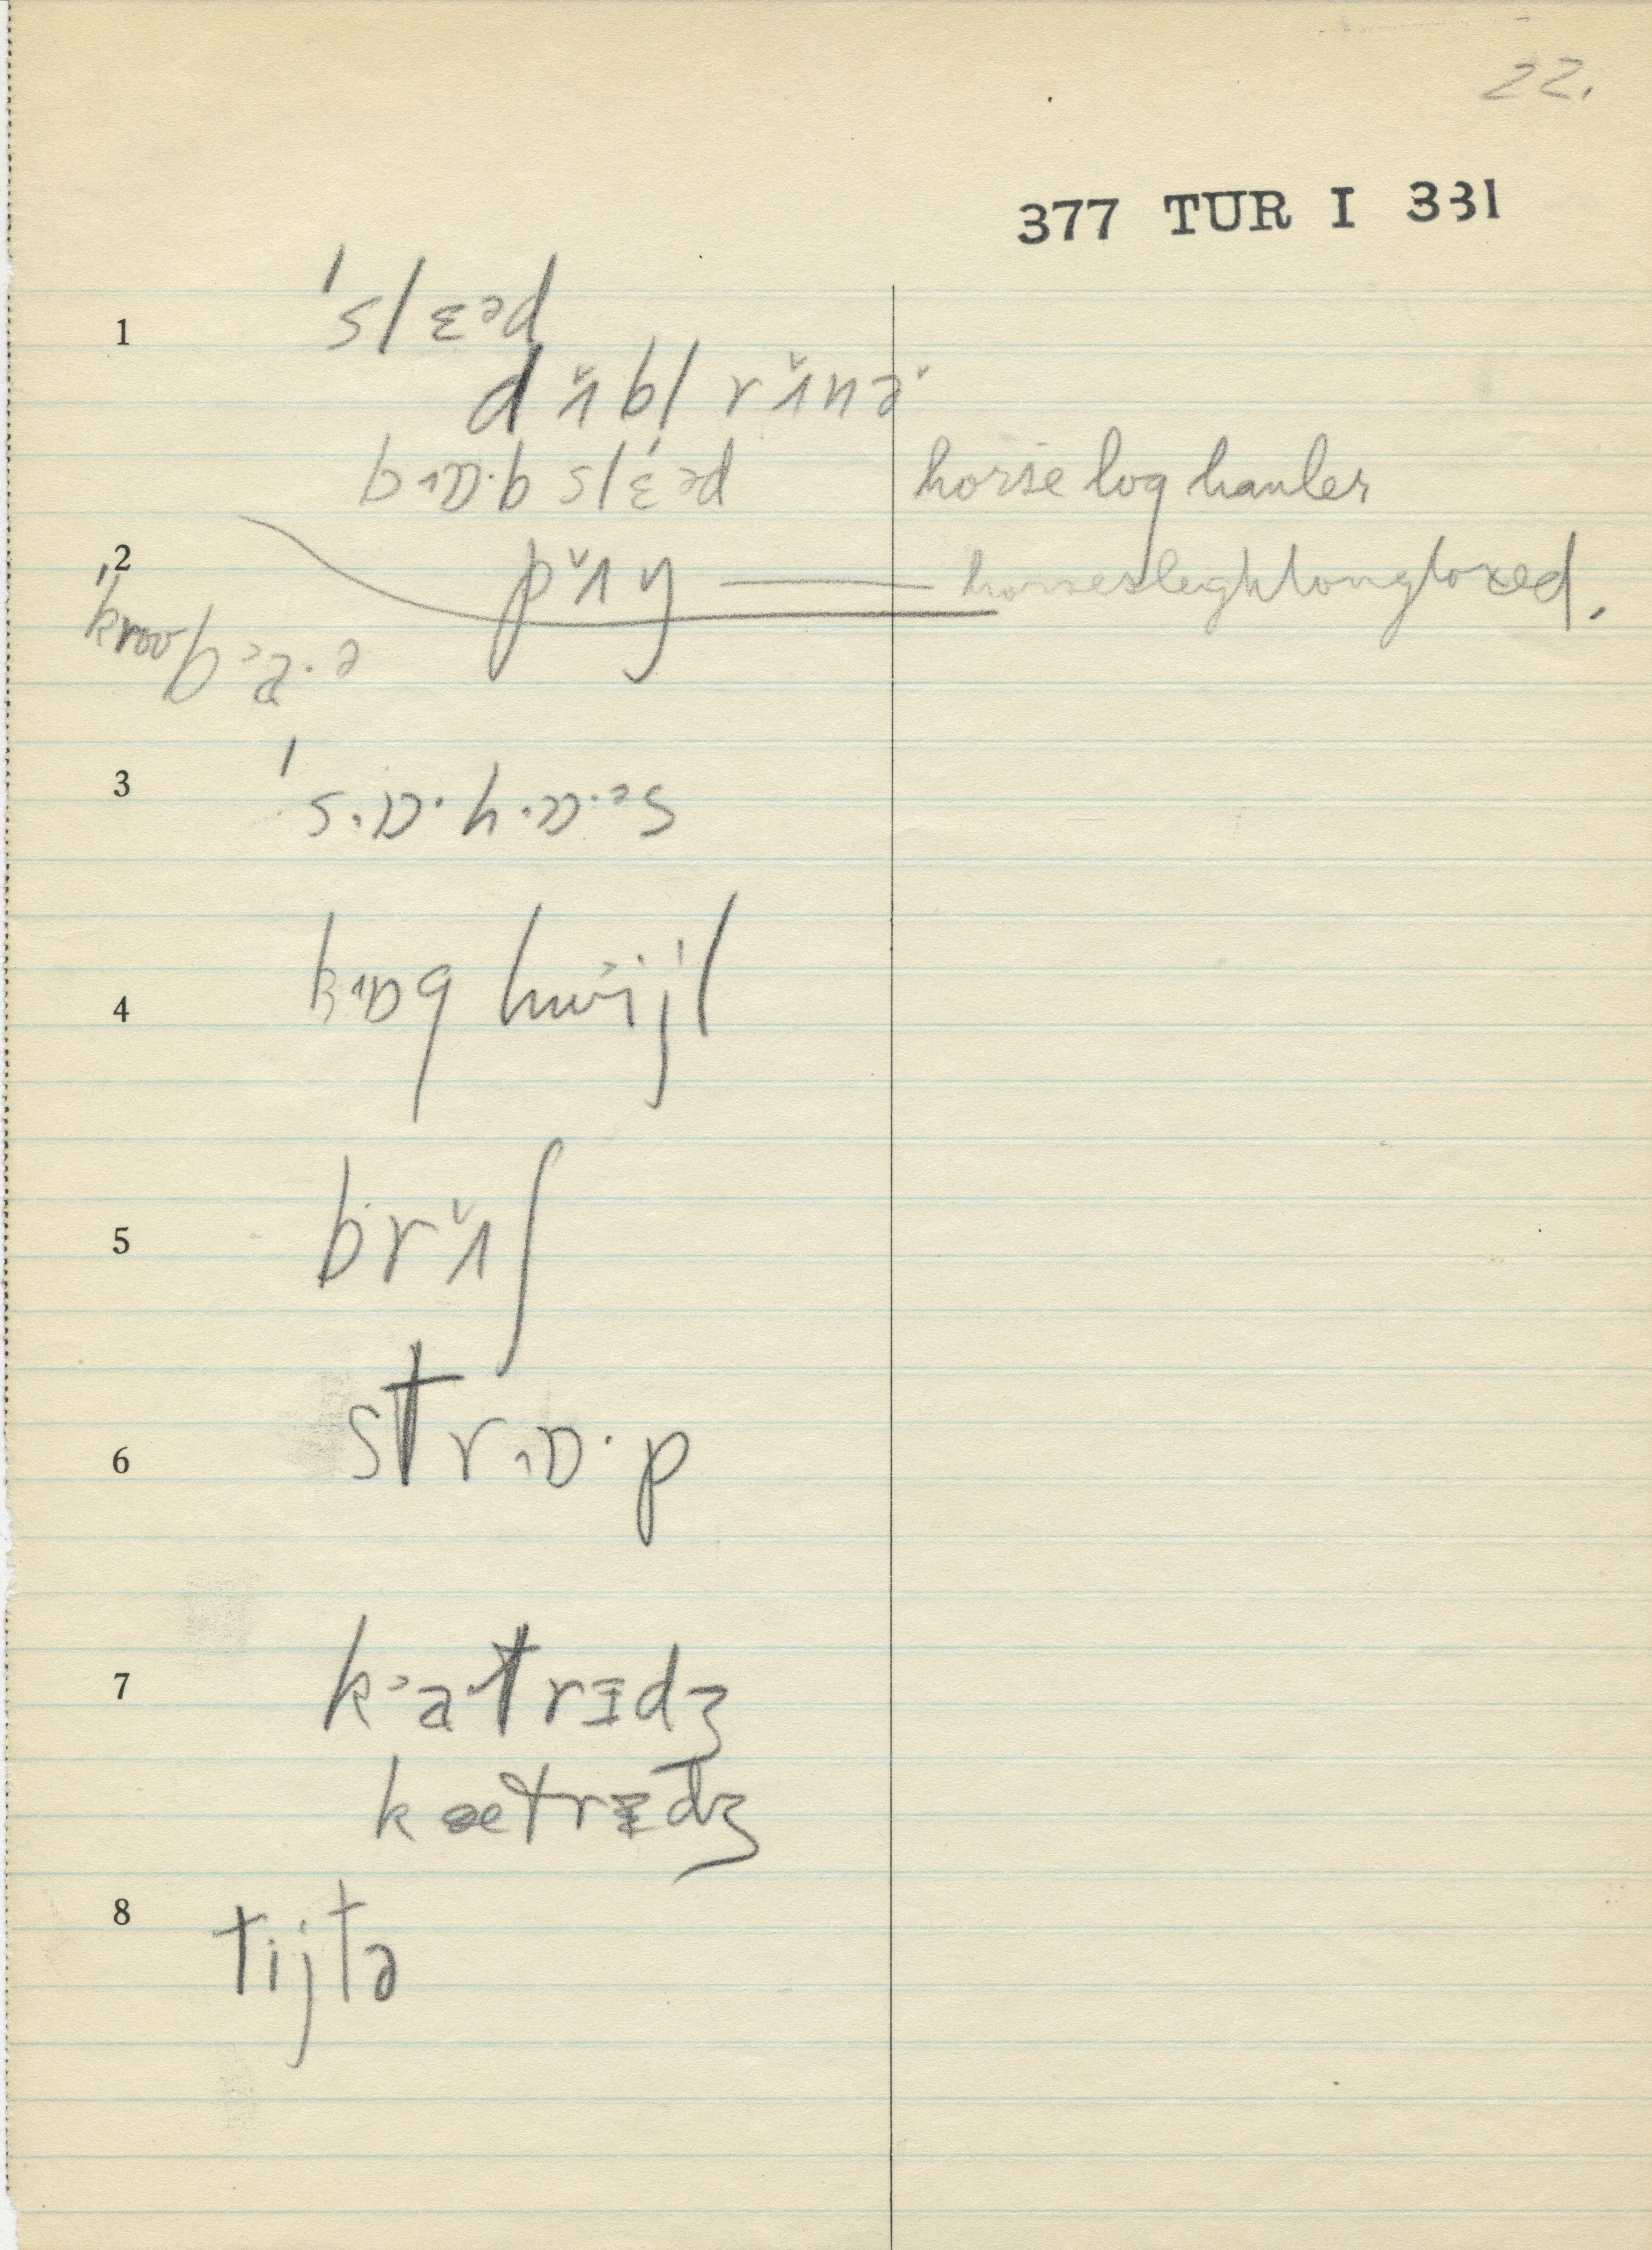 22.
377 TUR I 331
1 ˈslɛəd
dʌ̌bl rʌ̌nɚ
bɒˑb slɛ́əd horse log hauler
2 pʌ̌ŋ — horsesleighlongloxed.
ˈkroʊbaˑə
3 ˈsɒˑhɒˑəs
4 hwijl
5 brʌ̌ʃ
6 strɒˑp
7 katrɪdʒ
kætrɪdʒ
8 tijtə